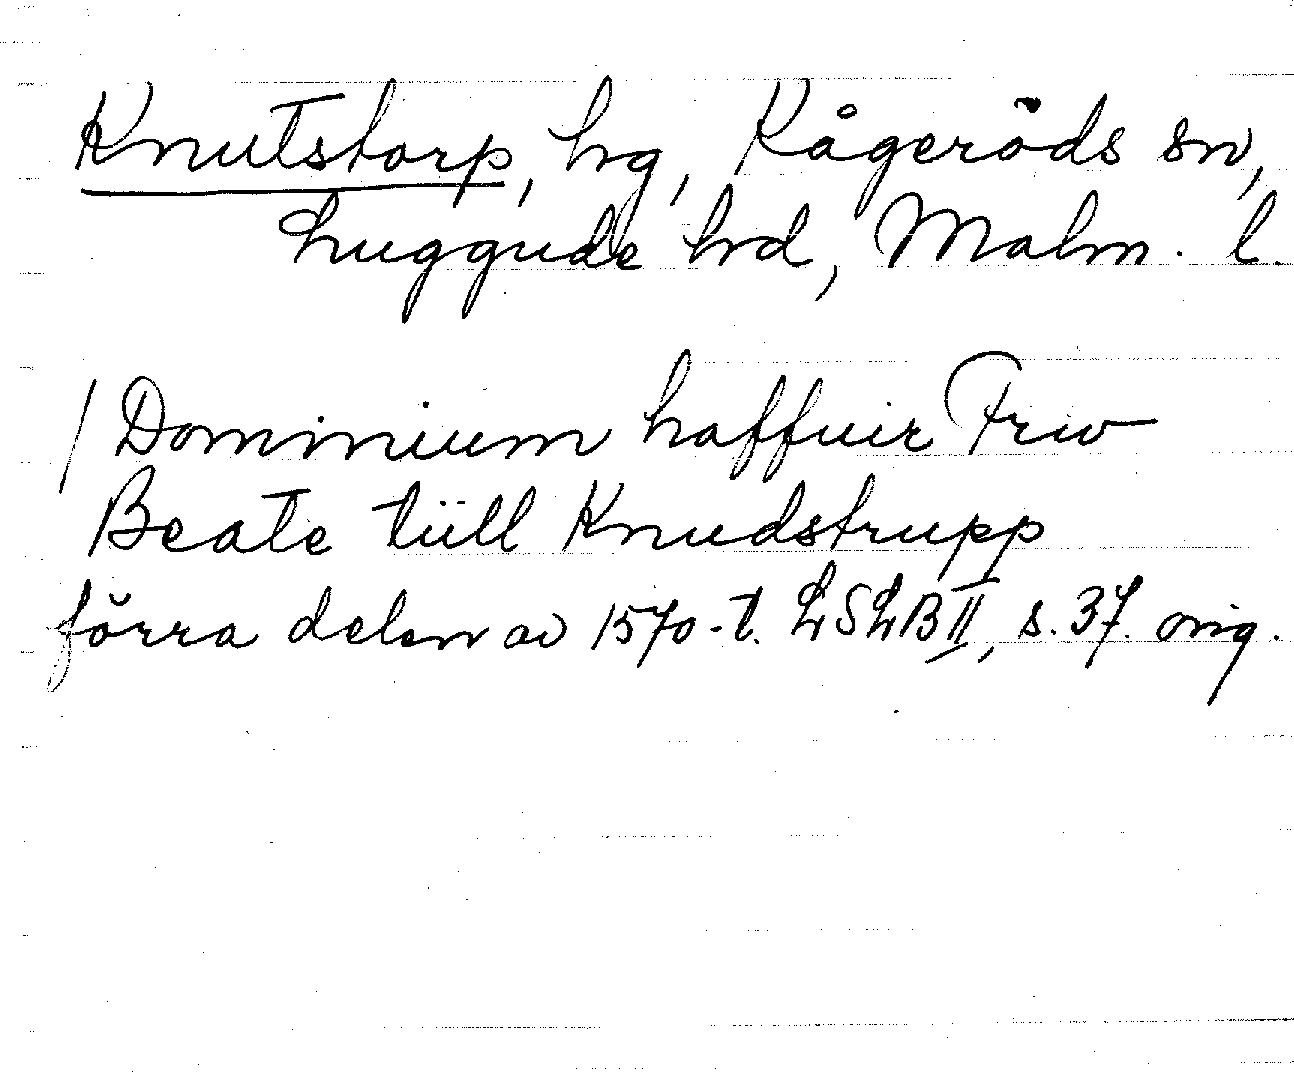 Knutstorp, hg, Kågeröds sn,
Luggude hd, Malm. l.
/ Dominium haffuir Frw
Beate tüll Knudstrupp
förra delen av 1570-t. LSLB II, s. 37. orig.